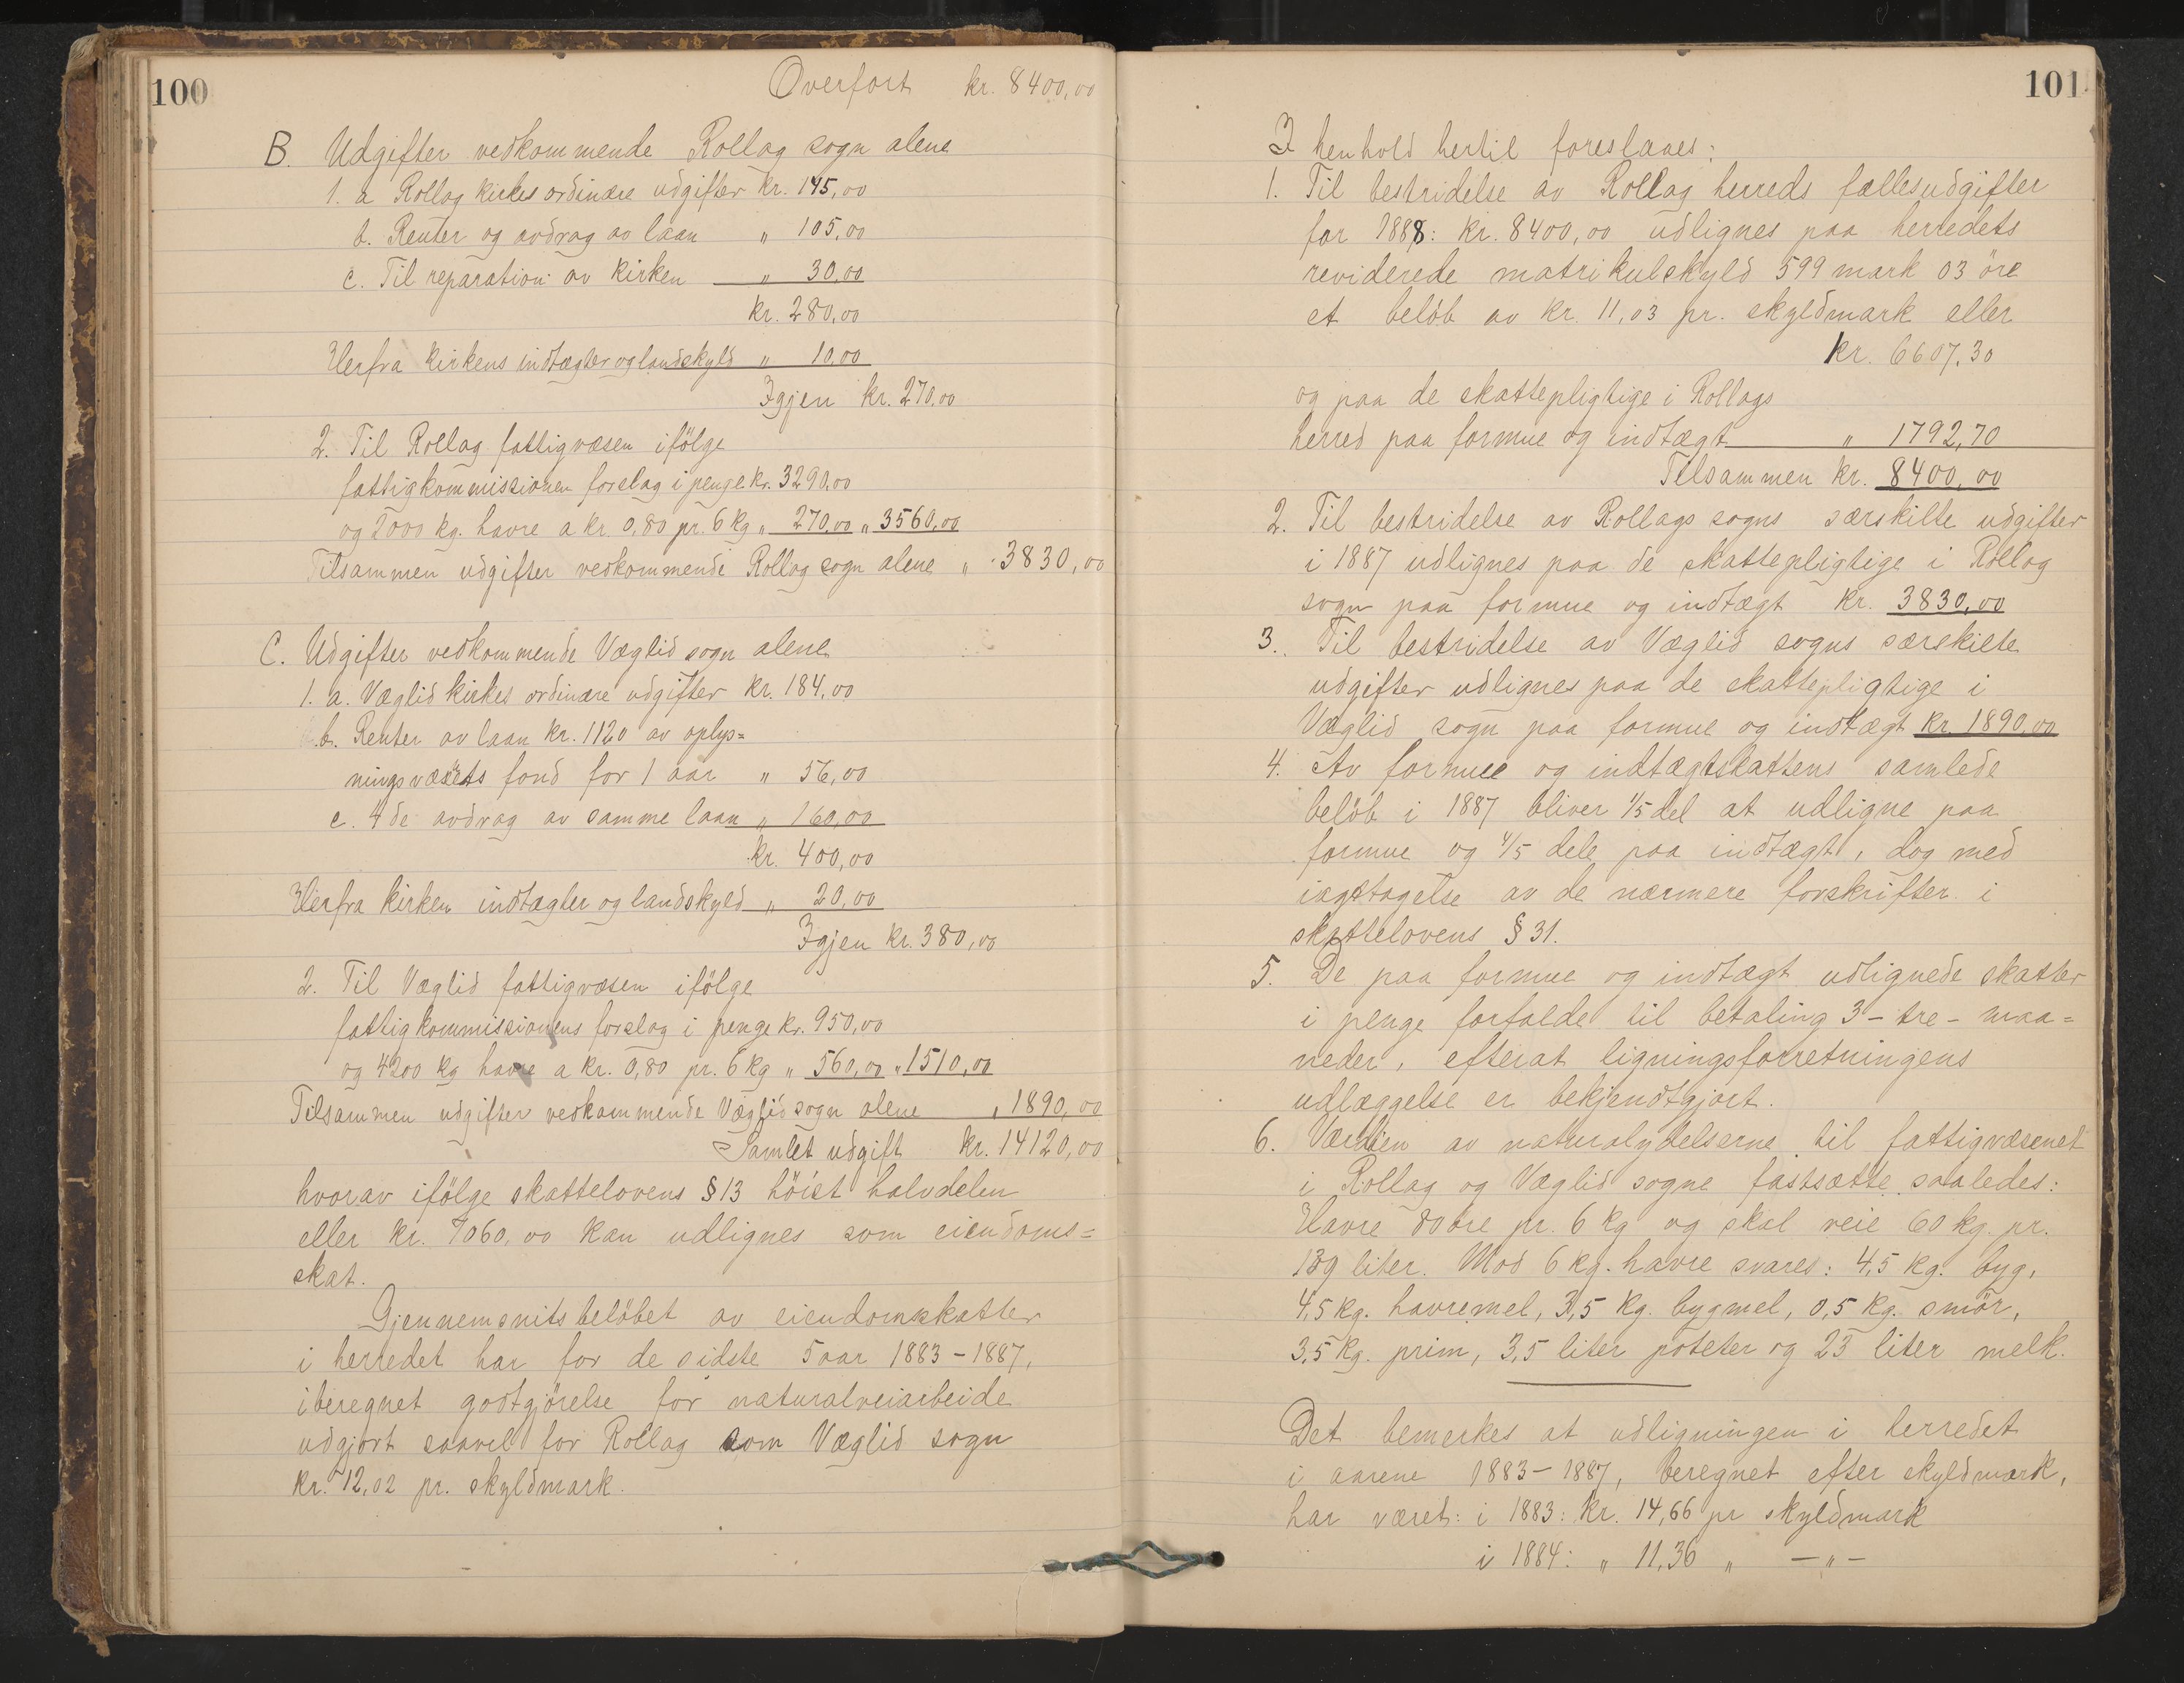 100
Overført kr. 8400,00
B. Udgifter vedkommende Rollag sogn alene
1. a Rollag kirkes ordinære udgifter kr. 145,00
b. Renter og avdrag av laan " 105,00
c. Til reparation av kirken " 30,00
kr. 280,00
Herfra kirkens indtægter og landskyld " 10,00
Igjen kr. 270,00
2. Til Rollag fattigvæsen ifölge
fattigkommissionen forslag i penge kr. 3290,00
og 2000 kg. havre a kr. 0,80 pr. 6 kg " 270,00 " 3560,00
Tilsammen udgifter vedkommende Rollag sogn alene " 3830,00
C. Udgifter vedkommende Væglid sogn alene
1. a. Væglid kirkes ordinære udgifter kr. 184,00
b. Renter av laan kr. 1120 av oplys=
ningsvæsets fond for 1 aar " 56,00
c. 4de avdrag av samme laan " 160,00
kr. 400,00
Herfra kirken indtægter og landskyld " 20,00
Igjen kr. 380,00
2. Til Væglid fattigvæsen ifölge
fattigkommissionens forslag i penge kr. 950,00
og 4200 kg havre a kr. 0,80 pr. 6 kg " 560,00 " 1510,00
Tilsammen udgifter vedkommende Væglid sogn alene " 1890,00
Samlet udgift kr. 14120,00
hvorav ifölge skattelovens § 13 höist halvdelen
eller kr. 7060,00 kan udlignes som eiendoms=
skat.
Gjennemsnitsbelöbet av eiendomsskatter
i herredet har for de sidste 5 aar 1883-1887,
iberegnet godtgjörelse for naturalveiarbeide
udgjort saavel for Rollag som Væglid sogn
kr. 12,02 pr. skyldmark.
101
I henhold hertil foreslaaes:
1. Til bestridelse av Rollag herreds fællesudgifter
for 1888: kr. 8400,00 udlignes paa herredets
reviderede matrikulskyld 599 mark 03 öre
et belöb av kr. 11,03 pr. skyldmark eller
kr. 6607,30
og paa de skattepligtige i Rollags
herred paa formue og indtægt " 1792,70
Tilsammen kr. 8400,00
2. Til bestridelse av Rollags sogns særskilte udgifter
i 1887 udlignes paa de skattepligtige i Rollag
sogn paa formue og indtægt kr. 3830,00
3. Til bestridelse av Væglid sogns særskilte
udgifter udlignes paa de skattepligtige i
Væglid sogn paa formue og indtægt kr. 1890,00
4. Av formue og indtægtskattens samlede
belöb i 1887 bliver 1/5 del at udligne paa
formue og 4/5 dele paa indtægt, dog med
iagttagelse av de nærmere forskrifter i
skattelovens § 31.
5. De paa formue og indtægt udlignede skatter
i penge forfalde til betaling 3 - tre - maa=
neder, efterat ligningsforretningens
udlæggelse er bekjendtgjort.
6. Værdien av naturalydelserne til fattigvæsenet
i Rollag og Væglid sogne fastsætte saaledes:
Havre 80 öre pr. 6 kg og skal veie 60 kg. pr.
139 liter. Mod 6 kg. havre svares: 4,5 kg. byg,
4,5 kg. havremel, 3,5 kg. bygmel, 0,5 kg. smör,
3,5 kg. prim, 3,5 liter poteter og 25 liter melk.
Det bemerkes at udligningen i herredet
i aarene 1883-1887, beregnet efter skyldmark,
har været: i 1883: kr. 14,66 pr skyldmark
i 1884: " 11,36 " - " -